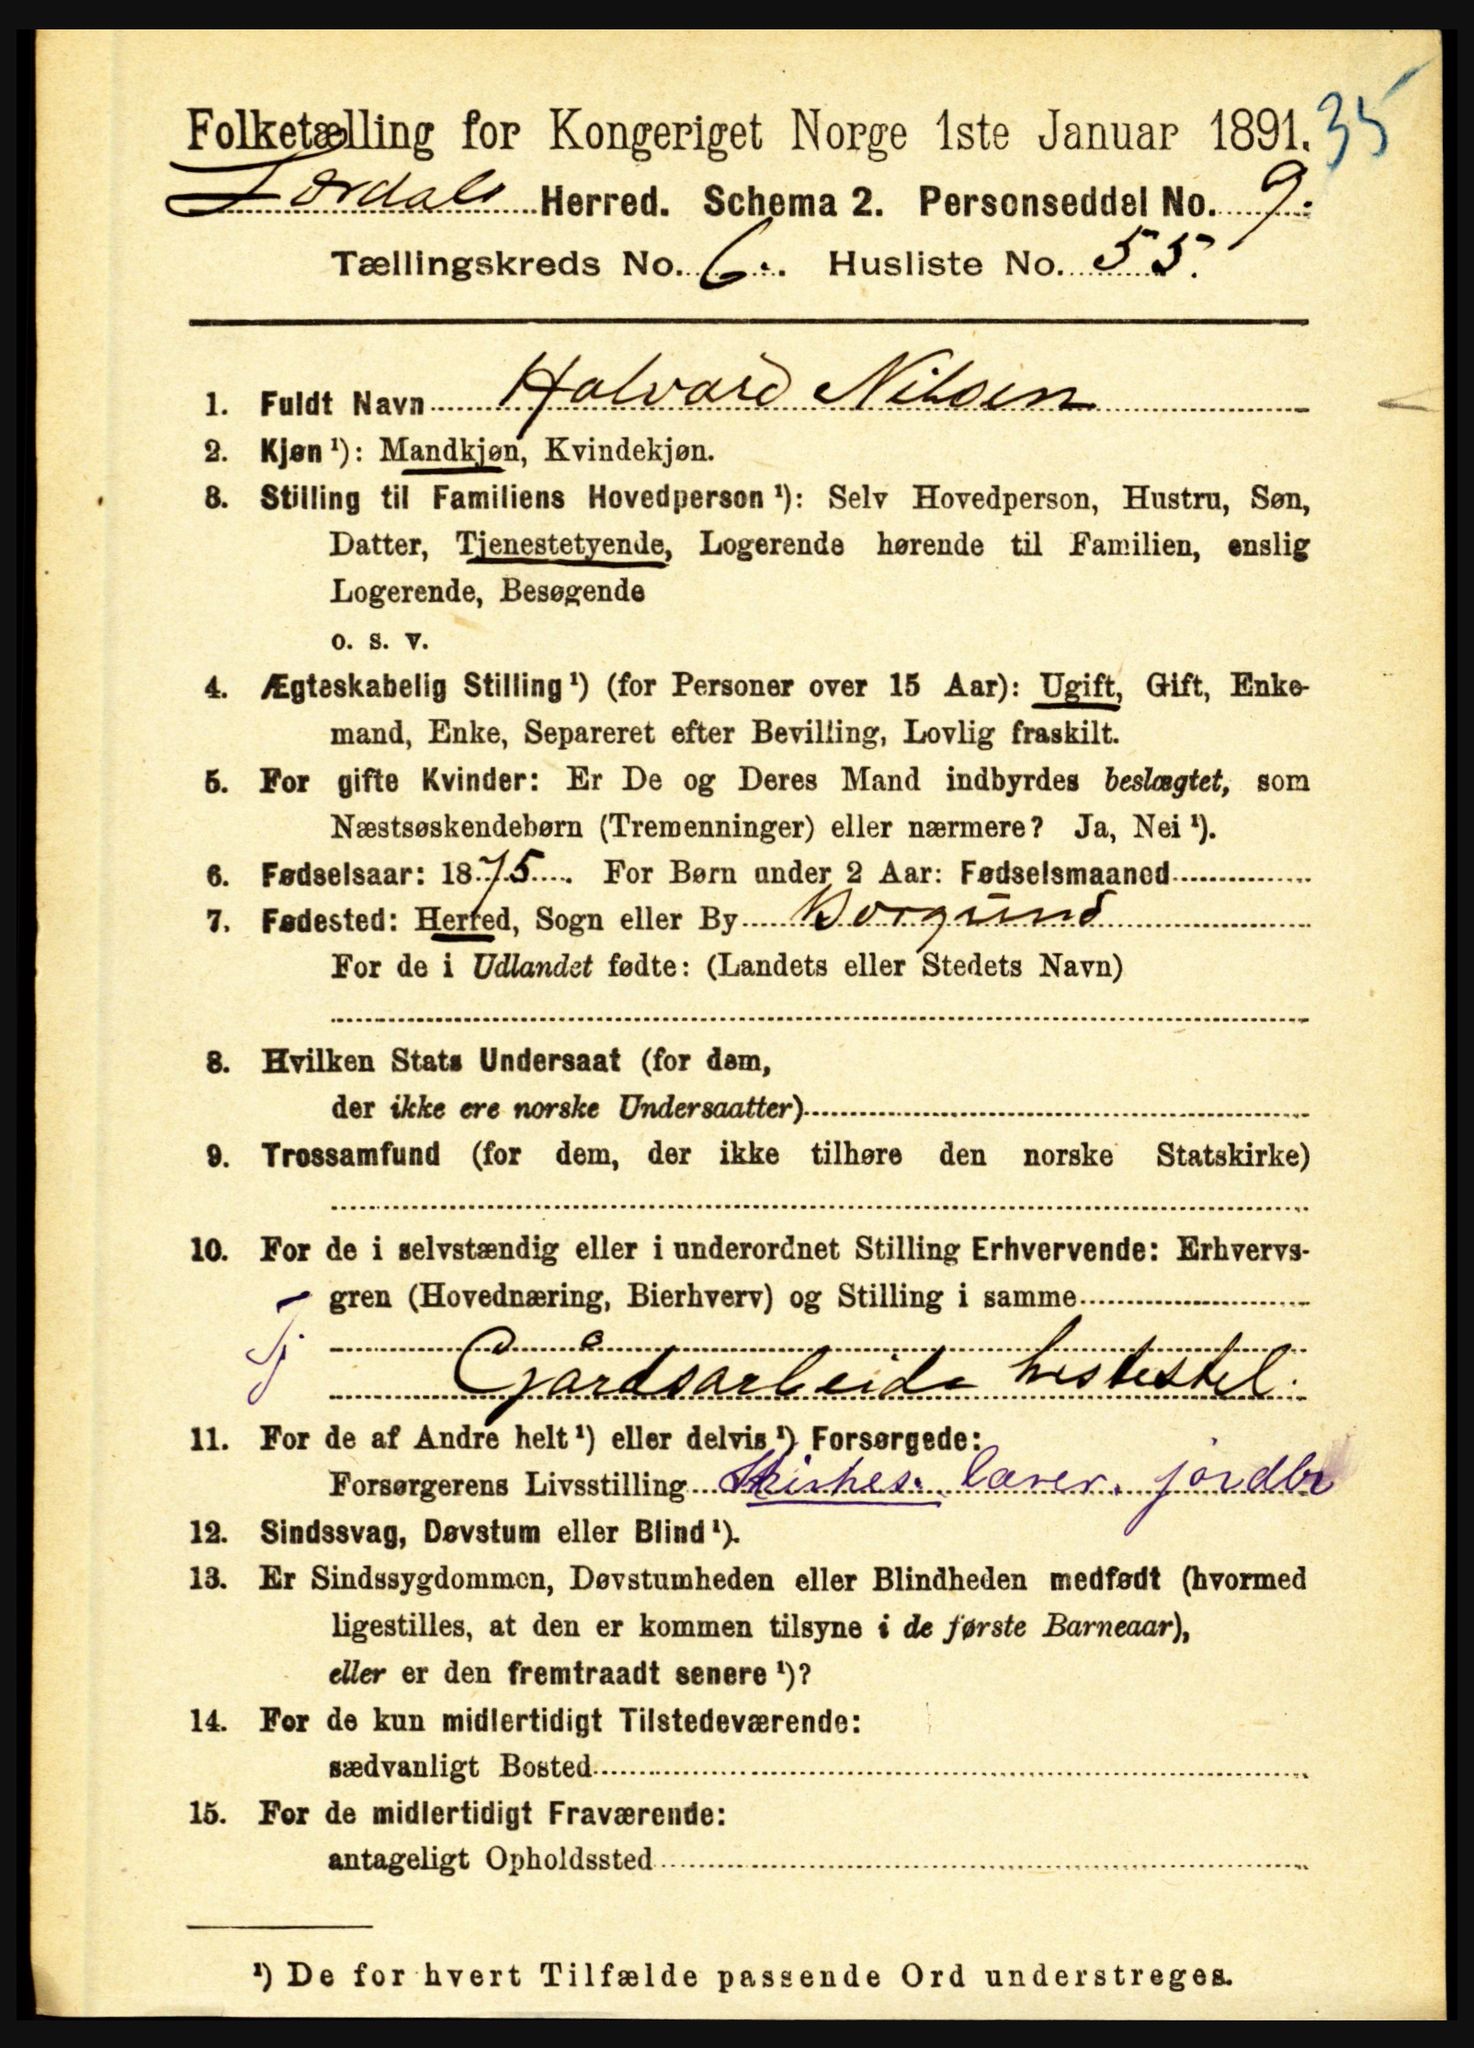 Folketælling for Kongeriget Norge 1ste Januar 1891. 35
Lærdals Herred. Schema 2. Personseddel No. 9.
Tællingskreds No. 6. Husliste No. 55.
1. Fuldt Navn Halvard Nilsen
2. Kjøn ¹): Mandkjøn, Kvindekjøn.
3. Stilling til Familiens Hovedperson ¹): Selv Hovedperson, Hustru, Søn,
Datter, Tjenestetyende, Logerende hørende til Familien, enslig
Logerende, Besøgende
o. s. v.
4. Ægteskabelig Stilling ¹) (for Personer over 15 Aar): Ugift, Gift, Enke-
mand, Enke, Separeret efter Bevilling, Lovlig fraskilt.
5. For gifte Kvinder: Er De og Deres Mand indbyrdes beslægtet, som
Næstsøskendebørn (Tremenninger) eller nærmere? Ja, Nei ¹).
6. Fødselsaar: 1875. For Børn under 2 Aar: Fødselsmaaned
7. Fødested: Herred, Sogn eller By Borgund
For de i Udlandet fødte: (Landets eller Stedets Navn)
8. Hvilken Stats Undersaat (for dem,
der ikke ere norske Undersaatter)
9. Trossamfund (for dem, der ikke tilhøre den norske Statskirke)
10. For de i selvstændig eller i underordnet Stilling Erhvervende: Erhvervs-
gren (Hovednæring, Bierhverv) og Stilling i samme
Tj
Gårdsarbeide hestestel.
11. For de af Andre helt ¹) eller delvis ¹) Forsørgede:
Forsørgerens Livsstilling lærer. jordbr
12. Sindssvag, Døvstum eller Blind ¹).
13. Er Sindssygdommen, Døvstumheden eller Blindheden medfødt (hvormed
ligestilles, at den er kommen tilsyne i de første Barneaar),
eller er den fremtraadt senere ¹)?
14. For de kun midlertidigt Tilstedeværende:
sædvanligt Bosted
15. For de midlertidigt Fraværende:
antageligt Opholdssted
¹) De for hvert Tilfælde passende Ord understreges.